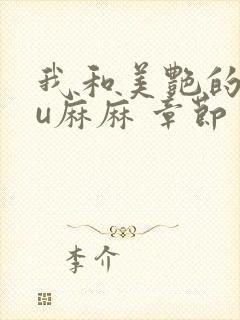 我和美艷的
u麻麻 章節
李介